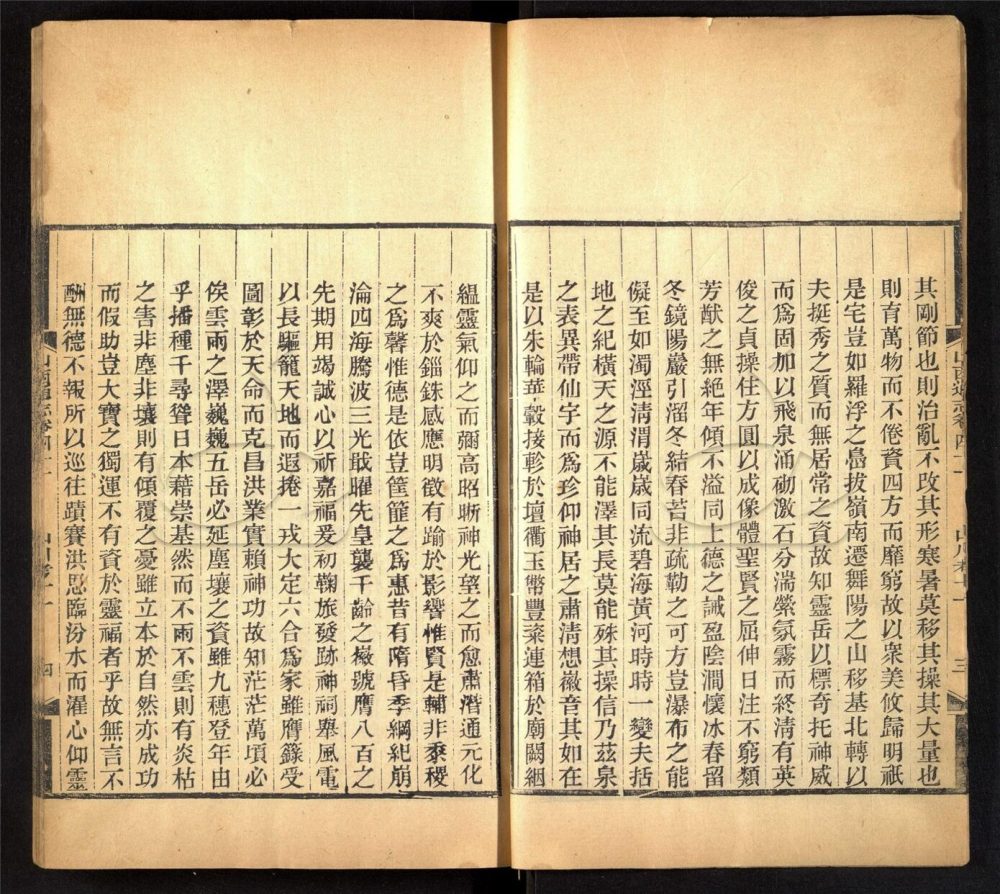 其剛節也則治亂不改其形寒暑莫移其操其大量也
則育萬物而不倦資四方而靡窮故以衆美攸歸明祇
是宅豈如羅浮之島拔嶺南遷舞陽之山移基北轉以
夫挺秀之質而無居常之資故知靈岳以標奇托神威
而為固加以飛泉涌砌激石分湍縈氛霧而終清有英
俊之貞操住方圓以成像體聖賢之屈伸日注不窮類
芳猷之無絶年傾不溢同上德之誡盈陰澗懷冰春留
冬鏡陽巖引溜冬結春苔非疏勒之可方豈瀑布之能
儗至如濁涇清渭歲歲同流碧海黃河時時一變夫括
地之紀橫天之源不能澤其長莫能殊其操信乃茲泉
之表異帶仙宇而為珍仰神居之肅清想徽音其如在
是以朱輪華轂接軫於壇衢玉幣豐粢連箱於廟闕絪
縕靈氣仰之而彌高昭晰神光望之而愈肅潛通元化
不爽於錙銖感應明徵有踰於影響惟賢是輔非黍稷
之為馨惟德是依豈筐篚之為惠昔有隋昏季綱紀崩
淪四海騰波三光戢曜先皇襲千齡之徽號膺八百之
先期用竭誠心以祈嘉福爰初鞠旅發跡神祠舉風電
以長驅籠天地而遐捲一戎大定六合為家雖膺籙受
圖彰於天命而克昌洪業實賴神功故知茫茫萬頃必
俟雲雨之澤巍巍五岳必延塵壤之資雖九穗登年由
乎播種千尋聳日本藉崇基然而不雨不雲則有炎枯
之害非塵非壤則有傾覆之憂雖立本於自然亦成功
而假助豈大寶之獨運不有資於靈福者乎故無言不
酬無德不報所以巡往蹟賽洪恩臨汾水而濯心仰靈
三
四